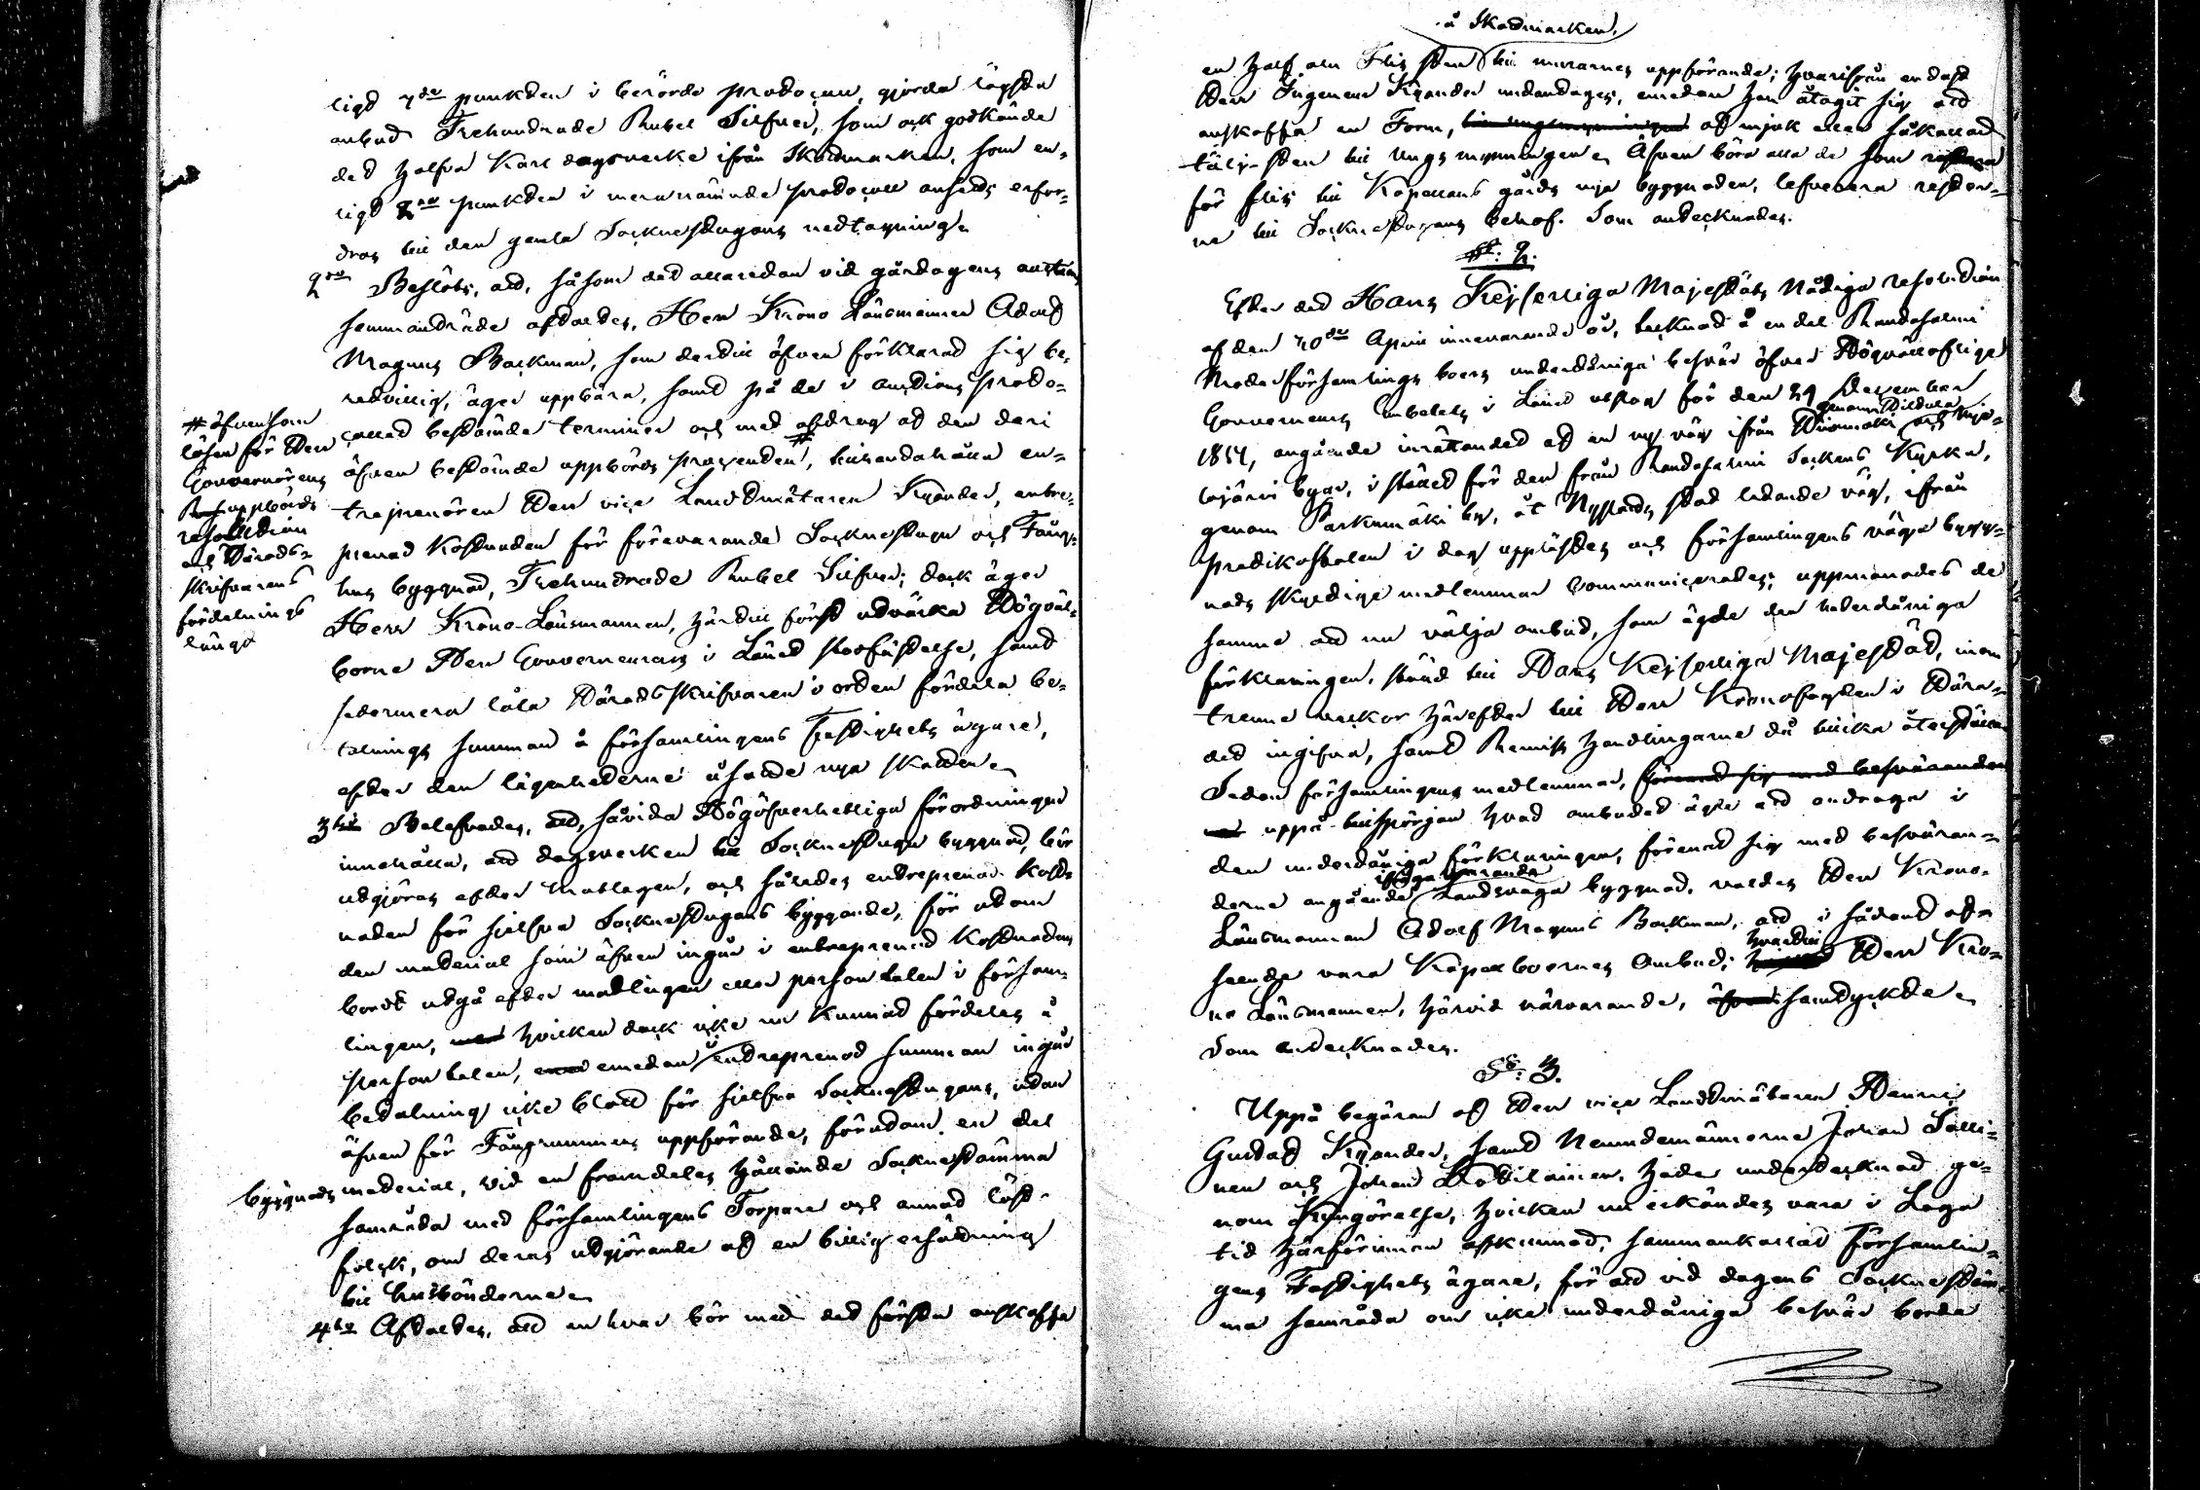 ligt 7de punkten i berörde protocoll, gjorda lägsta
anbud Trehundrade Rubel Silfver, som ock godkände
det halfva Karl dagsverke ifrån Skattmarken, som en-
ligt 8de punkten i mernämnde protocoll ansetts erfor-
dras till den gamla Socknestugans nedtagning.
2do Beslöts, att, såsom det allaredan vid gårdagens auction
sammanträde aftaltes, Herr Krono Länsmannen Adolf
Magnus Backman, som dertill äfven förklarat sig be-
redvillig, äger uppbära, samt på de i auctions proto-
collet bestämde terminer och med afdrag af den deri
äfven bestämde uppbörds procenten, # tillhandahålla en-
treprenören Herr vice Landtmätaren Kyander, entre-
prenad kostnaden för förevarande Sockenstugu och Fång-
hus byggnad, Trehundrade Rubel Silfver; dock äger
Herr Krono-Länsmannen, härtill först utvärka Högväl-
borne Herr Gouverneurens i Länet stadfästelse, samt
sedermera låta Häradsskrifvaren i orten fördela be-
talnings summan å församlingens Fastighets ägare,
efter den lägenheterne åsatte nya skatten.
# äfvensom
lösen för Herr
Gouvernörens
uppbörds
resolution
och Härads-
skrifvarens
fördelnings
längd
3tio Belefvades, att, såvida Högöfverhetliga förordningar
innehålla, att dagsverken till Sockenstugu byggnad, bör
utgöras efter matlagen, och således entreprenad kost-
naden för sjelfva Sockenstugans byggande, för utom
den material som äfven ingår i entreprenad kostnaden
bordt utgå efter matlagen eller persontalen i försam-
lingen, hvilken dock icke nu kunnat fördelas å
persontalen, emedan entreprenad summan ingår
betalning icke blott för sjelfva Sockenstugans, utan
äfven för Fångrummens uppförande, förutom en del
byggnads material, vid en framdeles hållande Sockenstämma
samråda med församlingens Torpare och annat löst-
folck, om deras utgörande af en billig ersättning
till husbönderne.
4to Aftaltes, att en hvar bör med det första anskaffa
å Skattmarken,
en half aln Flis sten till murarnes uppförande; hvarifrån endast
Herr Ingenieur Kyander undantages, emedan han åtagit sig att
anskaffa en Form, af mjuk eller såkallad
tälj-sten till ungs mynningen. Äfven böra alla de som
för flis till Kapellans gårds nya byggnaden, lefverera resten-
ne till Sockenstugans behof. Som antecknades.
§: 2.
Efter det Hans Kejserliga Majestäts Nådiga resolution
af den 10de April innevarande år, tecknad å en del Randasalmi
Moderförsamlings boers underdåniga besvär öfver Högvällofliga
Gouvernements Embetets i Länet utslag för den 29 December
1854, angående inrättandet af en ny väg ifrån genom och
byar, i stället för den från Randasalmi Sockens Kyrka,
genom Parkumäki by, åt Nyslotts stad ledande väg, ifrån
predikostolen i dag upplästes och församlingens väga bygg-
nads skyldige medlemmar communicerades; uppmanades de
samme att nu välja ombud, som ägde den underdåniga
förklaringen, ställd till Hans Kejserliga Majestät, inom
trenne veckor härefter till Herr Kronofogden i Hära-
det ingifva, samt Remiss handlingarne då tillika återställa.
Sedan församlingens medlemmar,
uppå tillspörjan hvad ombudet ägde att andraga i
den underdåniga förklaringen, förenat sig med besväran-
derne angående Landsvägs byggnad, valdes Herr Krono-
Länsmannen Adolf Magnus Backman, att i sådant af-
seende vara Kapellboernes Ombud; hvartill Herr Kro-
no Länsmannen, härvid närvarande, samtyckte.
Som antecknades.
§: 3.
Uppå begäran af Herr vice Landtmätaren Henric
Gustaf Kyander, samt Nemndemännerne Johan Salli-
nen och Johan Kotilainen, hade undertecknad ge-
nom Kungörelse, hvilken nu erkändes vara i Laga
tid härförinnan afkunnad, sammankallat Församlin-
gens Fastighets ägare, för att vid dagens Sockenstäm-
ma samråda om icke underdåniga besvär borde